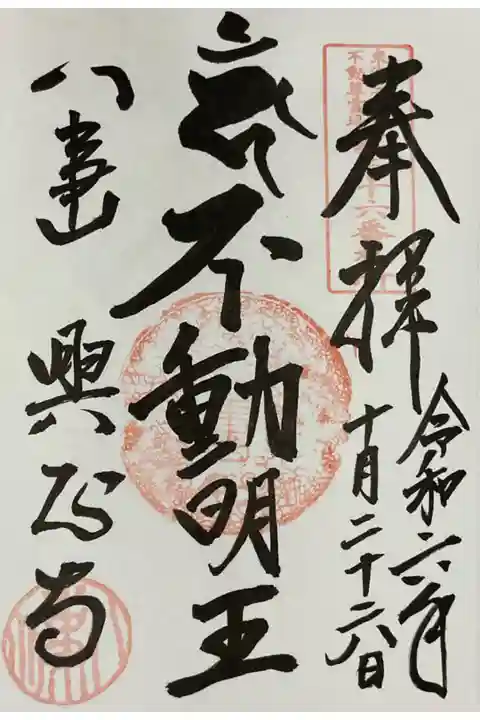 奉拝
令和六年
十月二十六日
不動明王
八事山
興正寺